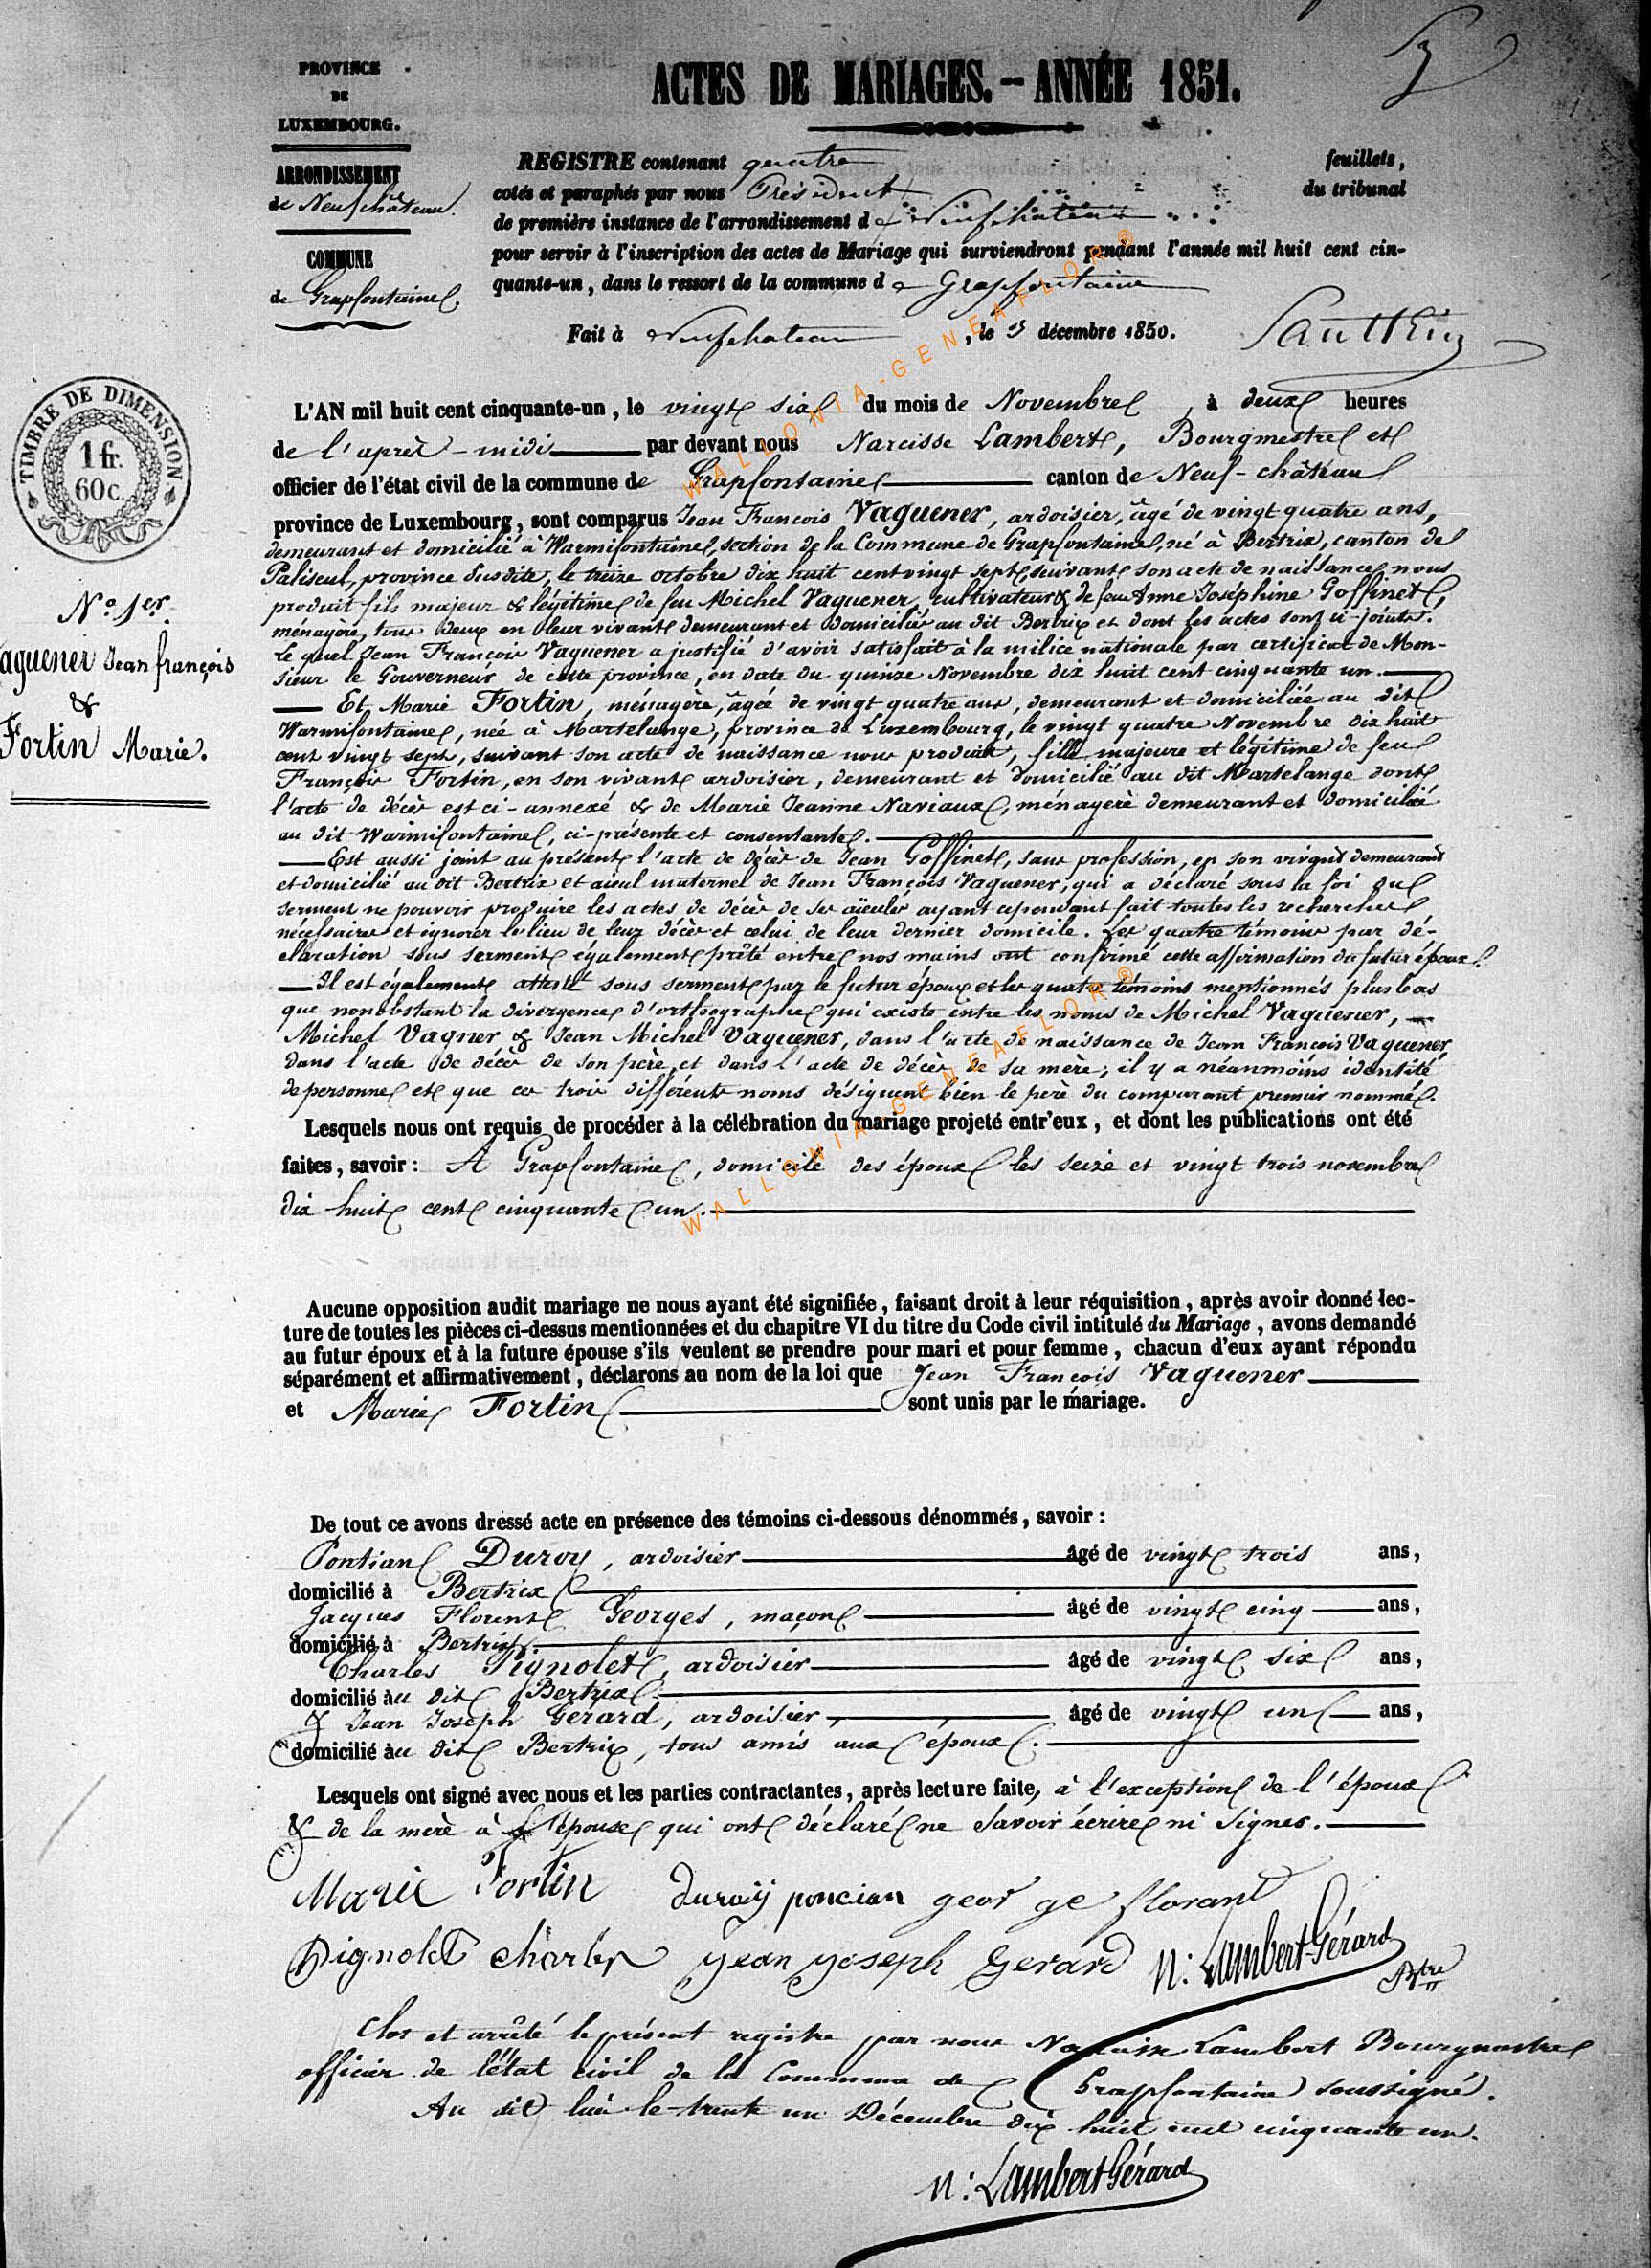 PROVINCE
DE
LUXEMBOURG.
ARRONDISSEMENT
de Neufchâteau.
COMMUNE
de Grapfontaine
ACTES DE MARIAGES. -- ANNÉE 1851.
REGISTRE contenant quatre feuillets,
cotés et paraphés par nous Président du tribunal
de première instance de l'arrondissement de Neufchateau
pour servir à l'inscription des actes de Mariage qui surviendront pendant l'année mil huit cent cin-
quante-un, dans le ressort de la commune de Grapfontaine
Fait à Neufchateau, le décembre 1850.
TIMBRE DE DIMENSION
1 fr.
60 c.
L'AN mil huit cent cinquante-un, le vingt six du mois de Novembre, à deux heures
de l'après-midi par devant nous Narcisse Lambert, Bourgmestre et
officier de l'état civil de la commune de Grapfontaine canton de Neuf-château
province de Luxembourg, sont comparus Jean François Vaguener, ardoisier, âgé de vingt quatre ans,
demeurant et domicilié à Warmifontaine, section de la Commune de Grapfontaine, né à Bertrix, canton de
Paliseul, province susdite, le treize octobre dix huit cent vingt sept, suivant son acte de naissance nous
produit fils majeur & légitime de feu Michel Vaguener, cultivateur & de feu Anne Joséphine Goffinet,
ménagère, tous deux en leur vivant demeurant et domiciliés au dit Bertrix et dont les actes sont ci-joints.
Le quel Jean François Vaguener a justifié d'avoir satisfait à la milice nationale par certificat de Mon-
sieur le Gouverneur de cette province, en date du quinze Novembre dix huit cent cinquante un.
Et Marie Fortin, ménagère, âgée de vingt quatre ans, demeurant et domiciliée au dit
Warmifontaine, née à Martelange, province de Luxembourg, le vingt quatre Novembre dix huit
cent vingt sept, suivant son acte de naissance nous produit, fille majeure et légitime de feu
François Fortin, en son vivant ardoisier, demeurant et domicilié au dit Martelange dont
l'acte de décès est ci-annexé & de Marie Jeanne Naviaux, ménagère demeurant et domiciliée
au dit Warmifontaine, ci-présente et consentante.
Est aussi joint au présent l'acte de décès de Jean Goffinet, sans profession, en son vivant demeurant
et domicilié au dit Bertrix et aïeul maternel de Jean François Vaguener, qui a déclaré sous la foi du
serment ne pouvoir produire les actes de décès de ses aïeules ayant cependant fait toutes les recherches
nécessaires et ignorer le lieu de leur décès et celui de leur dernier domicile. Les quatre témoins par dé-
claration sous serment également prêté entre nos mains ont confirmé cette affirmation du futur époux.
Il est également attesté sous serment par le futur époux et les quatre témoins mentionnés plus bas
que nonobstant la divergence d'orthographe qui existe entre les noms de Michel Vaguener,
Michel Vagner & Jean Michel Vaguener, dans l'acte de naissance de Jean François Vaguener,
dans l'acte de décès de son père et dans l'acte de décès de sa mère; il y a néanmoins identité
de personne et que ces trois différents noms désignent bien le père du comparant premier nommé.
Lesquels nous ont requis de procéder à la célébration du mariage projeté entr'eux, et dont les publications ont été
faites, savoir: A Grapfontaine, domicile des époux les seize et vingt trois novembre
dix huit cent cinquante un.
Aucune opposition audit mariage ne nous ayant été signifiée, faisant droit à leur réquisition, après avoir donné lec-
ture de toutes les pièces ci-dessus mentionnées et du chapitre VI du titre du Code civil intitulé du Mariage, avons demandé
au futur époux et à la future épouse s'ils veulent se prendre pour mari et pour femme, chacun d'eux ayant répondu
séparément et affirmativement, déclarons au nom de la loi que Jean François Vaguener
et Marie Fortin sont unis par le mariage.
De tout ce avons dressé acte en présence des témoins ci-dessous dénommés, savoir:
Pontian Duroy, ardoisier âgé de vingt trois ans,
domicilié à Bertrix
Jacques Florent Georges, maçon âgé de vingt cinq ans,
domicilié à Bertrix.
Charles Pignolet, ardoisier âgé de vingt six ans,
domicilié au dit Bertrix
& Jean Joseph Gerard, ardoisier, âgé de vingt un ans,
domicilié au dit Bertrix, tous amis aux époux.
Lesquels ont signé avec nous et les parties contractantes, après lecture faite, à l'exception de l'époux
& de la mère à l'épouse qui ont déclaré ne savoir écrire ni signer.
Marie Fortin duroÿ poncian geor ge florant
Pignolet charles jean joseph Gerard N: Lambert-Gérard
Btre
Clos et arrêté le présent registre par nous Narcisse Lambert Bourgmestre
officier de l'état civil de la Commune de Grapfontaine soussigné.
Au dit lieu le trente un Décembre dix huit cent cinquante un.
N: Lambert Gérard
No 1er.
Vaguener Jean françois
&
Fortin Marie.
WALLONIA-GENEAFLOR®
WALLONIA-GENEAFLOR®